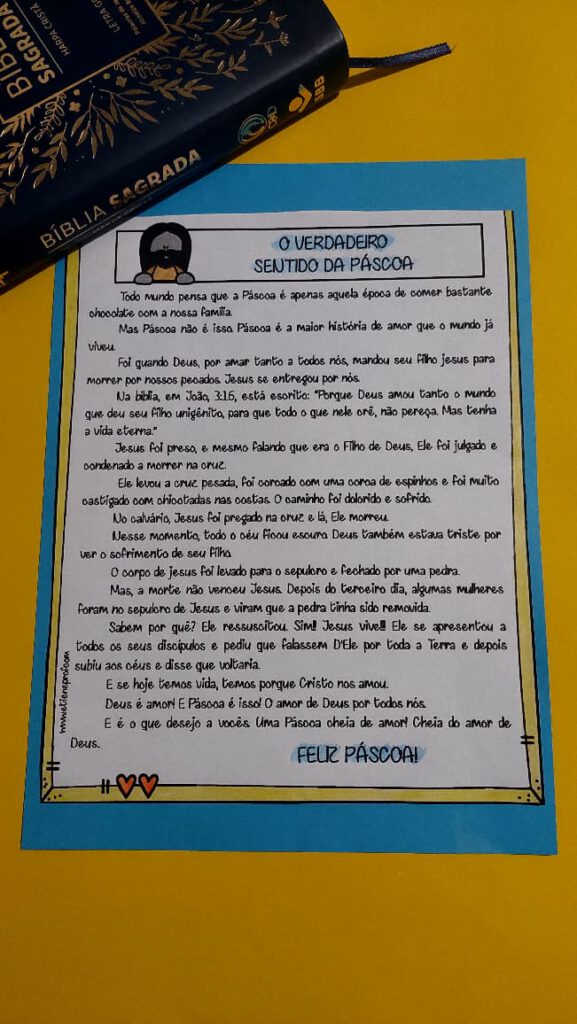 BÍBLIA
SAGRADA
HARPA CRISTÃ
BÍBLIA SAGRADA
SBB
O VERDADEIRO
SENTIDO DA PÁSCOA
Todo mundo pensa que a Páscoa é apenas aquela época de comer bastante
chocolate com a nossa família.
Mas Páscoa não é isso. Páscoa é a maior história de amor que o mundo já
viveu.
Foi quando Deus, por amar tanto a todos nós, mandou seu filho jesus para
morrer por nossos pecados. Jesus se entregou por nós.
Na bíblia, em João, 3:16, está escrito: "Porque Deus amou tanto o mundo
que deu seu filho unigênito, para que todo o que nele crê, não pereça. Mas tenha
a vida eterna."
Jesus foi preso, e mesmo falando que era o Filho de Deus, Ele foi julgado e
condenado a morrer na cruz.
Ele levou a cruz pesada, foi coroado com uma coroa de espinhos e foi muito
castigado com chicotadas nas costas. O caminho foi dolorido e sofrido.
No calvário, Jesus foi pregado na cruz e lá, Ele morreu.
Nesse momento, todo o céu ficou escuro. Deus também estava triste por
ver o sofrimento de seu filho.
O corpo de jesus foi levado para o sepulcro e fechado por uma pedra.
Mas, a morte não venceu Jesus. Depois do terceiro dia, algumas mulheres
foram no sepulcro de Jesus e viram que a pedra tinha sido removida.
Sabem por quê? Ele ressuscitou. Sim!! Jesus vive!! Ele se apresentou a
todos os seus discípulos e pediu que falassem D'Ele por toda a Terra e depois
subiu aos céus e disse que voltaria.
E se hoje temos vida, temos porque Cristo nos amou.
Deus é amor! E Páscoa é isso! O amor de Deus por todos nós.
E é o que desejo a vocês. Uma Páscoa cheia de amor! Cheia do amor de
Deus.
FELIZ PÁSCOA!
www.etieneprof.com